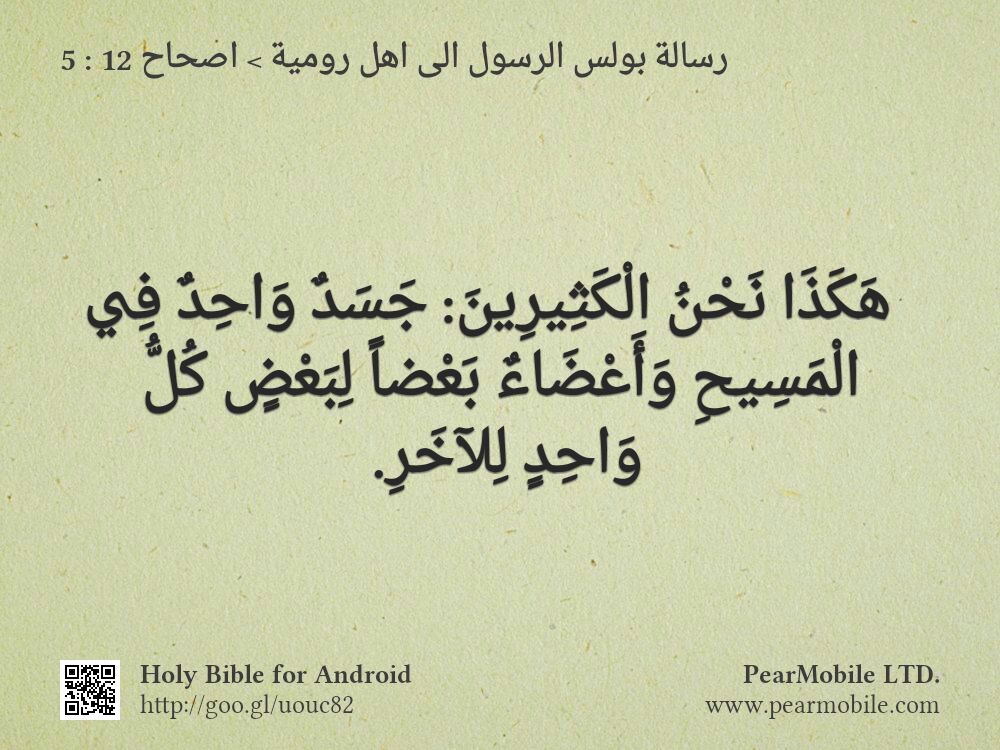 رسالة بولس الرسول الى اهل رومية > اصحاح 12 : 5
هَكَذَا نَحْنُ الْكَثِيرِينَ: جَسَدٌ وَاحِدٌ فِي
الْمَسِيحِ وَأَعْضَاءٌ بَعْضاً لِبَعْضٍ كُلُّ
وَاحِدٍ لِلآخَرِ.
Holy Bible for Android
http://goo.gl/uouc82
PearMobile LTD.
www.pearmobile.com